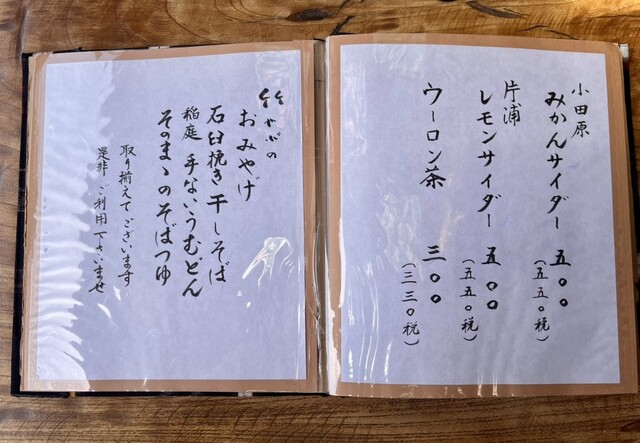 小田原
みかんサイダー 五〇〇
(五五〇税)
片浦
レモンサイダー 五〇〇
(五五〇税)
ウーロン茶 三〇〇
(三三〇税)
竹やぶの
おみやげ
石臼挽き干しそば
稲庭 手ないうむどん
そのまゝのそばつゆ
取り揃えてございます
是非 ご利用下さいませ